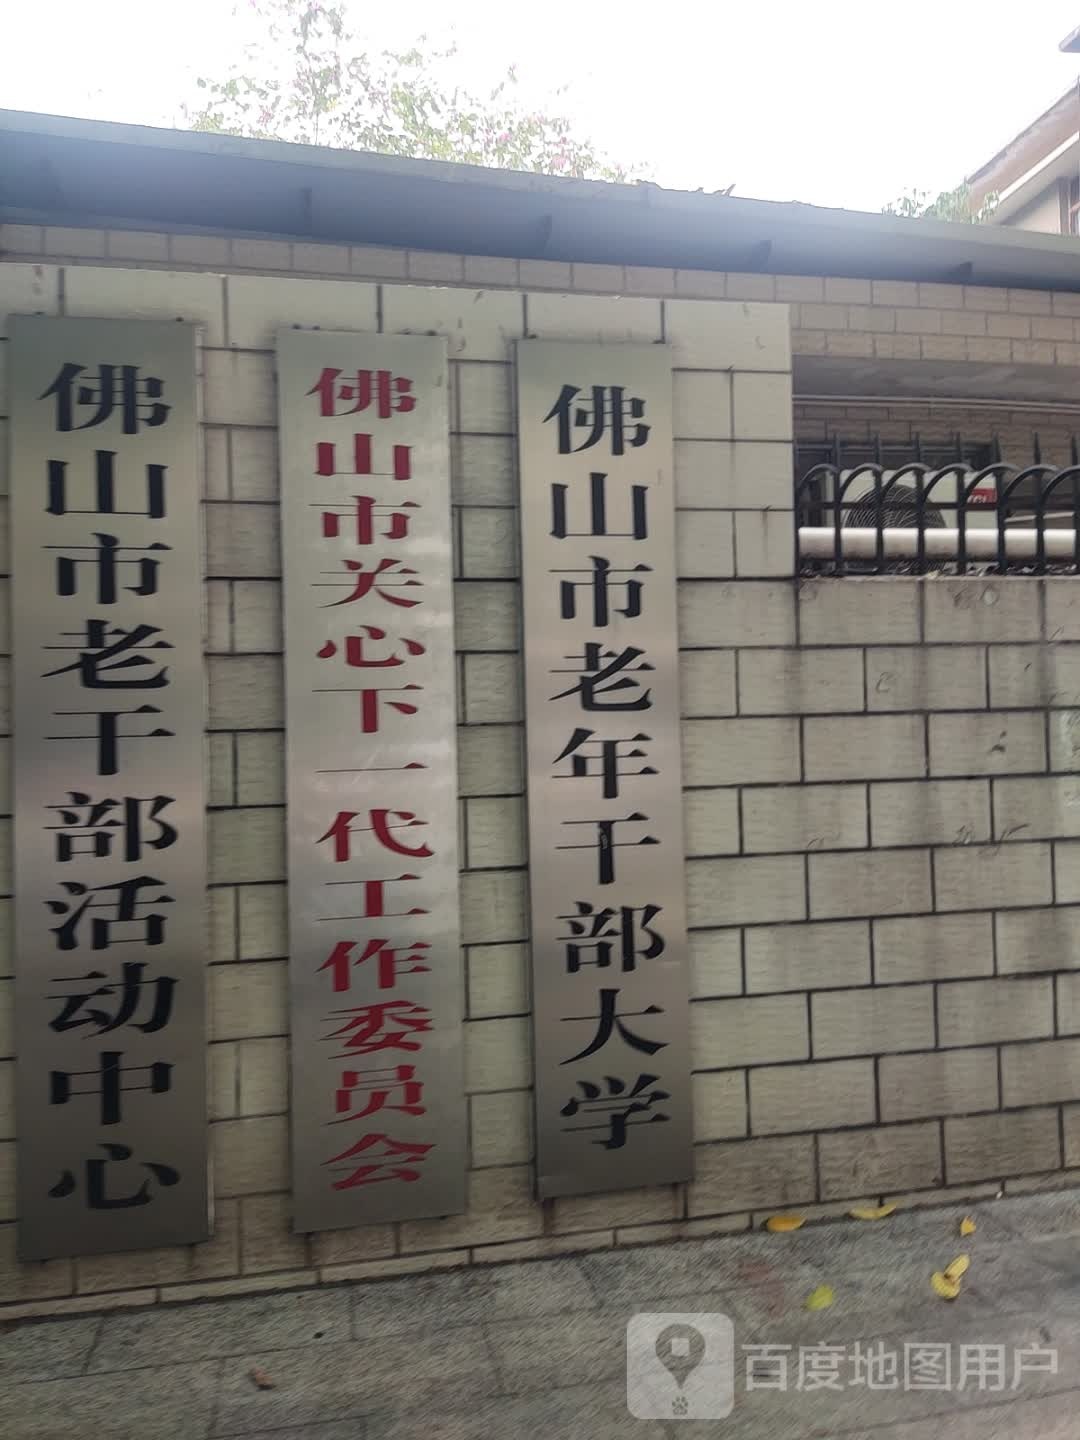 佛山市老干部活动中心
佛山市关心下一代工作委员会
佛山市老年干部大学
百度地图用户